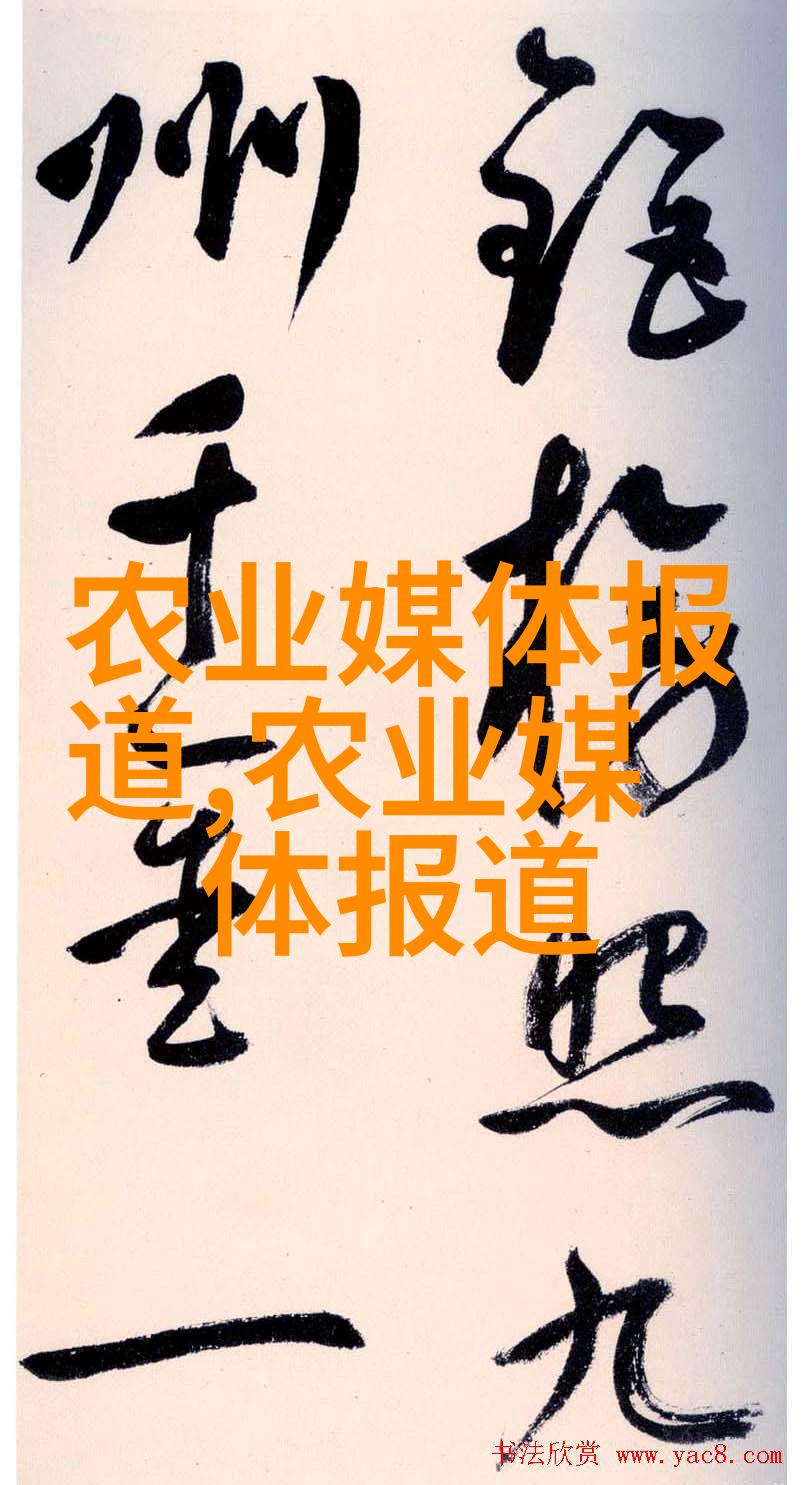 照九
州千一
农业媒体报
道,农业媒
体报道
书法欣赏 www.yac8.com